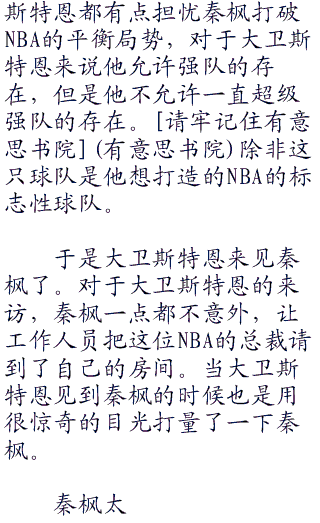 斯特恩都有点担忧秦枫打破
NBA的平衡局势，对于大卫斯
特恩来说他允许强队的存
在，但是他不允许一直超级
强队的存在。[请牢记住有意
思书院](有意思书院)除非这
只球队是他想打造的NBA的标
志性球队。
于是大卫斯特恩来见秦
枫了。对于大卫斯特恩的来
访，秦枫一点都不意外，让
工作人员把这位NBA的总裁请
到了自己的房间。当大卫斯
特恩见到秦枫的时候也是用
很惊奇的目光打量了一下秦
枫。
秦枫太